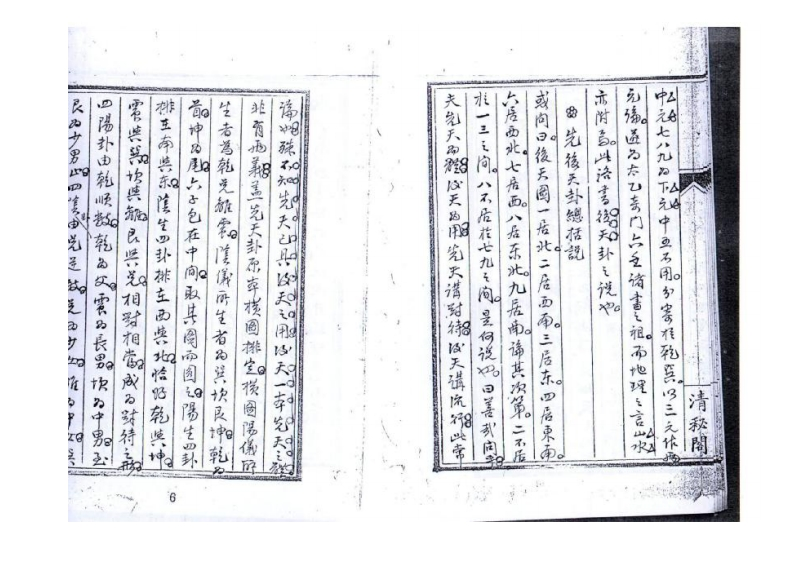 中元七八九為下元中五不用。分寄於乾巽。以三元作兩
元論。遁為太乙奇門六壬諸書之祖。而地理之言山水
亦附焉。此洛書後天卦之說也
先後天卦總括說
或問曰後天圖一居北。二居西南。三居東。四居東南。
六居西北。七居西。八居東北。九居南。論其次第。二不居
於一三之間。八不居於七九之間。是何說也。曰善哉問乎
夫先天為體後天為用先天講對待後天講流行此常
論也。殊不知先天已具後天之用後天一本先天之體
非有兩義蓋先天卦原本橫圖排定橫圖陽儀所
生者為乾兌離震陰儀所生者為巽坎艮坤乾為
首坤為尾六子包在中間取其圖而圓之陽生四卦
排在南與東陰生四卦排在西與北恰好乾與坤
震與巽坎與離艮與兌相對相當成為對待之形
四陽卦由乾順數乾為父震為長男坎為中男至
艮為少男止四陰由兌逆數兌為少女離為中女巽
清秘閣
6